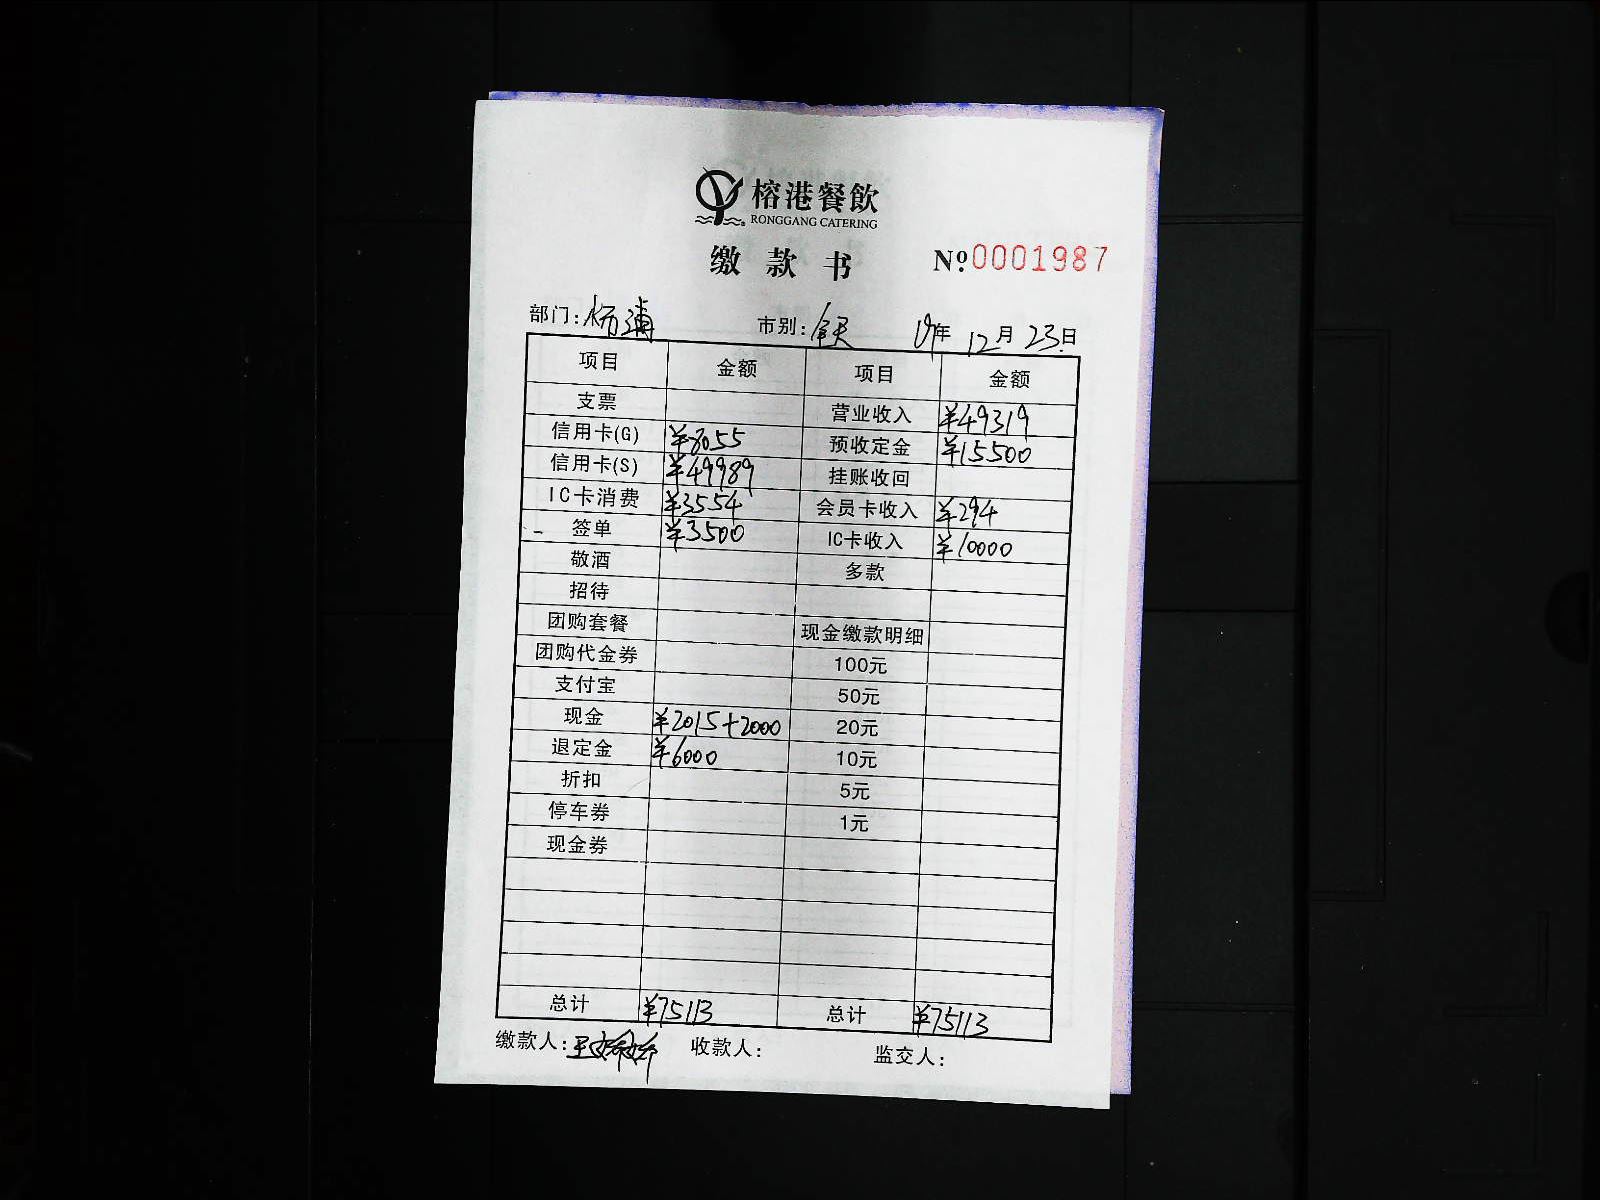 榕港餐飲
RONGGANG CATERING
缴款书 №0001987
部门:杨浦 市别:全天 19年 12月 23日
项目 金额 项目 金额
支票 营业收入 ¥49319
信用卡(G) ¥8055 预收定金 ¥15500
信用卡(S) ¥49989 挂账收回
IC卡消费 ¥3554 会员卡收入 ¥294
签单 ¥3500 IC卡收入 ¥10000
敬酒 多款
招待
团购套餐 现金缴款明细
团购代金券 100元
支付宝 50元
现金 ¥2015+2000 20元
退定金 ¥6000 10元
折扣 5元
停车券 1元
现金券
总计 ¥75113 总计 ¥75113
缴款人: 收款人: 监交人: